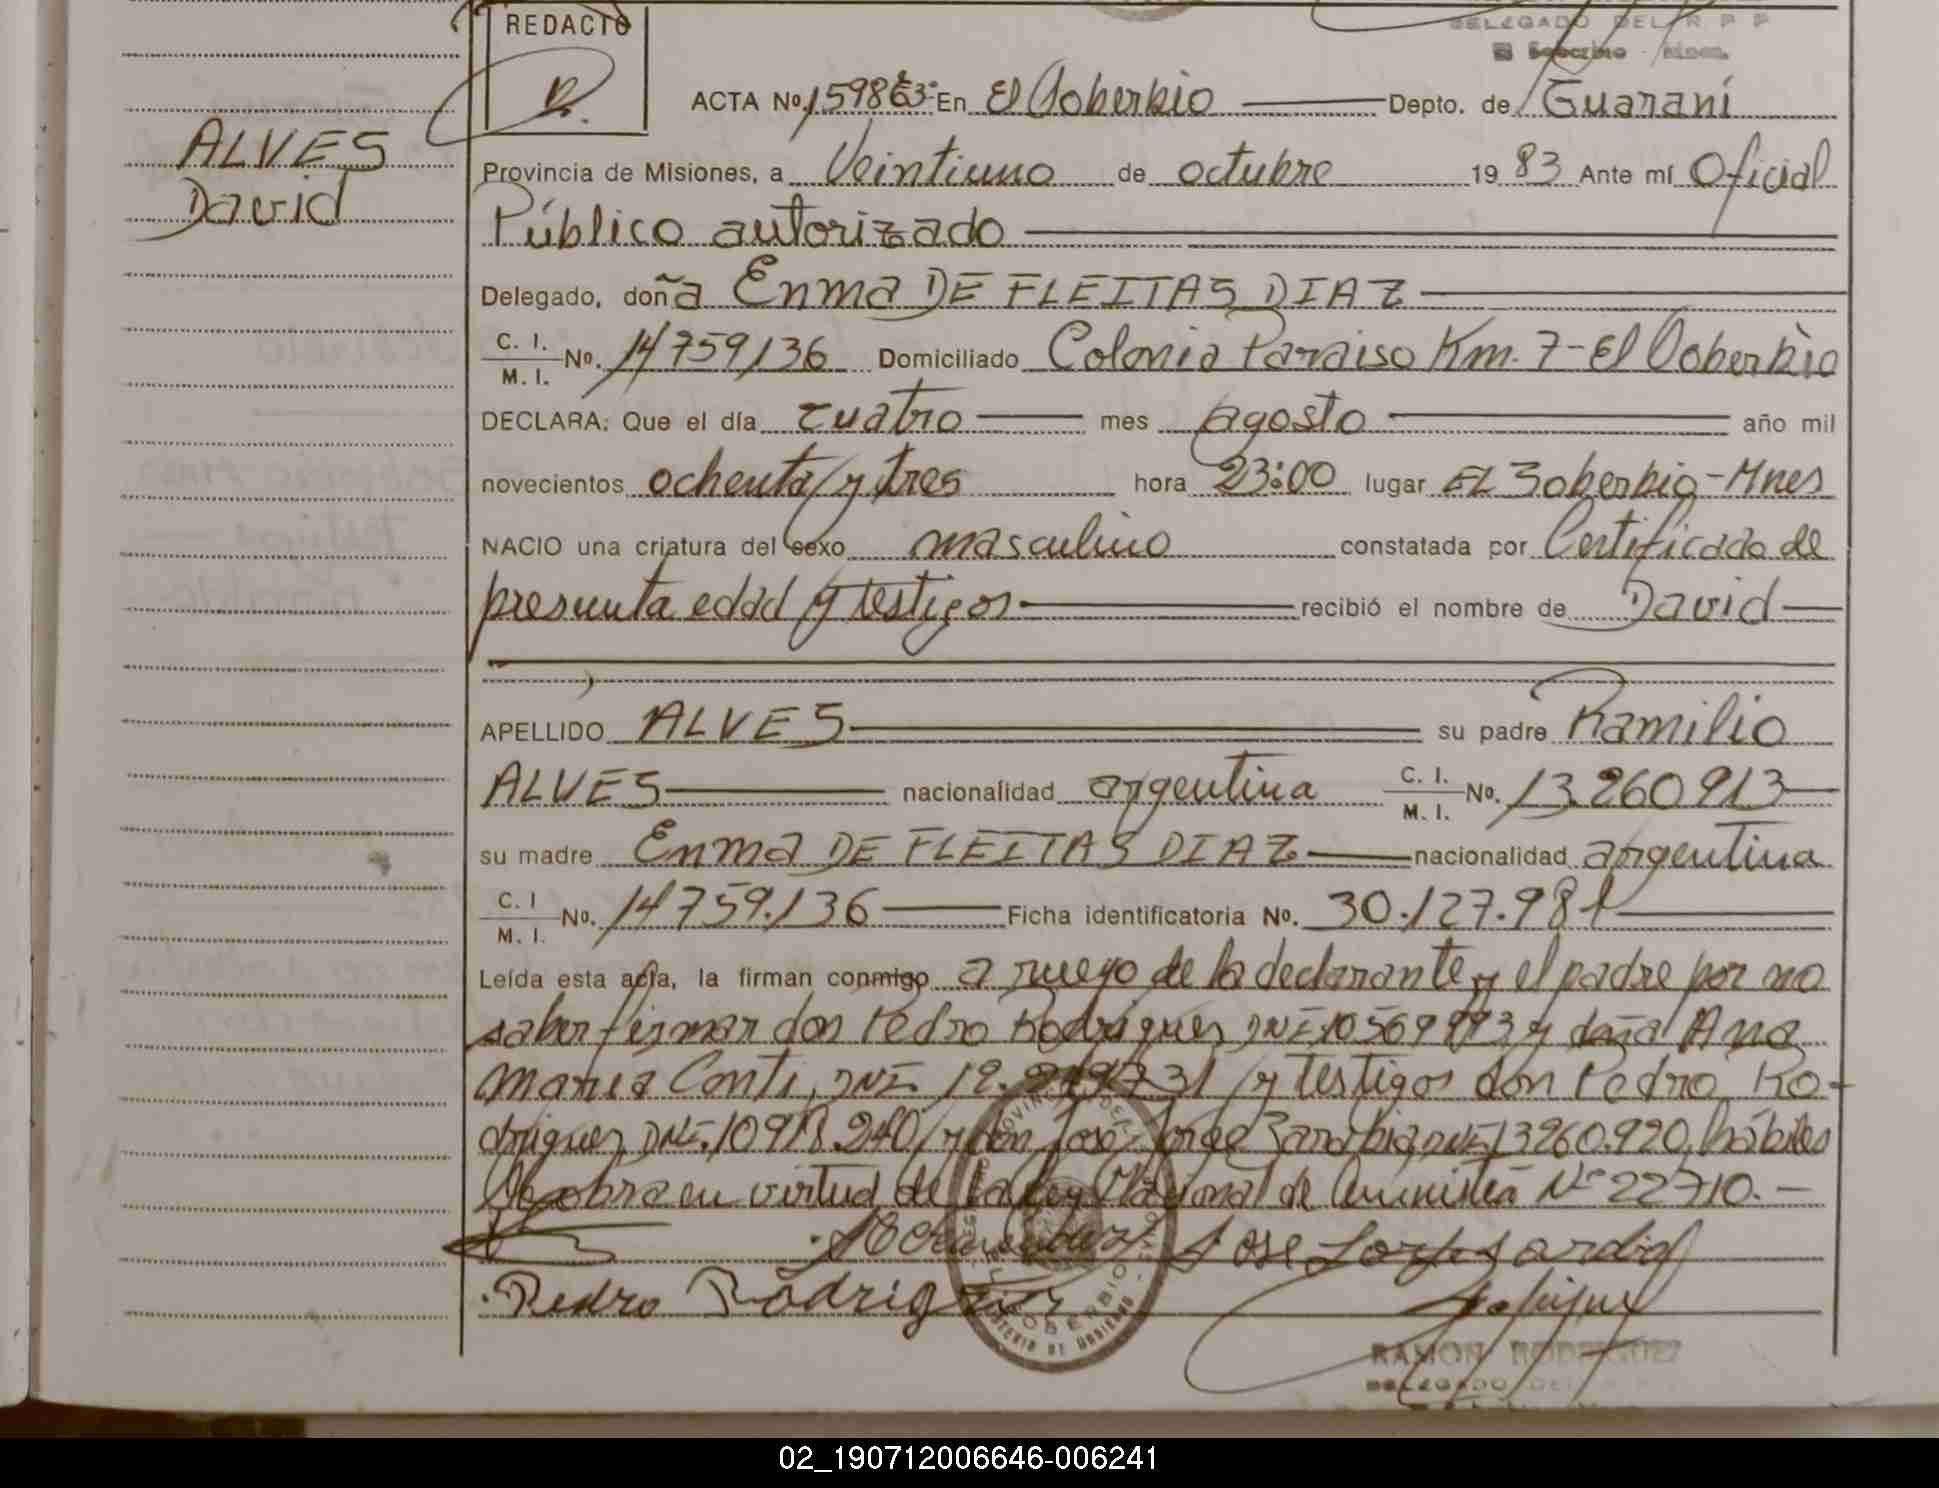 REDACTO
DELEGADO DEL R P P
ALVES
David
ACTA Nº 159863 En El Soberbio Depto. de Guaraní
Provincia de Misiones, a Veintiuno de octubre 19 83 Ante mí Oficial
Público autorizado
Delegado, doña Enma DE FLEITAS DIAZ
C. I.
M. I. Nº. 14759136 Domiciliado Colonia Paraiso Km. 7 - El Soberbio
DECLARA: Que el día cuatro mes agosto año mil
novecientos ochenta y tres hora 23:00 lugar EL Soberbio - Mnes
NACIO una criatura del sexo masculino constatada por Certificado de
presunta edad y testigos recibió el nombre de David
APELLIDO ALVES su padre Ramilio
ALVES nacionalidad argentina C. I. M. I. Nº. 13.260913
su madre Enma DE FLEITAS DIAZ nacionalidad argentina
C. I M. I. Nº. 14759.136 Ficha identificatoria Nº. 30.127.981
Leída esta acta, la firman conmigo a ruego de la declarante y el padre por no
saber firmar don Pedro Rodrigues, DNI y doña Ana
Maria Conti, DNI y testigos don Pedro Ro-
drigues, DNI. y don José Jorge DNI 13260.920, hábiles
Se obra en virtud de la Ley Nacional de Amnistia Nº 22710.-
Jose
Pedro Rodrigues
RAMON RODRIGUEZ
DELEGADO DE
02_190712006646-006241